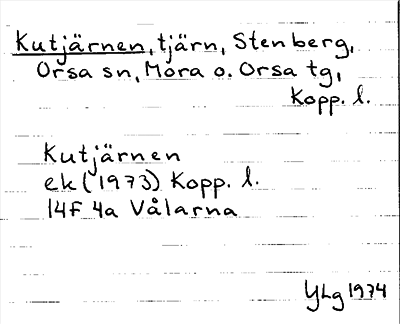 Kutjärnen, tjärn, Stenberg,
Orsa sn, Mora o. Orsa tg,
Kopp. l.
Kutjärnen
ek (1973) Kopp. l.
14F 4a Vålarna
YLg 1974